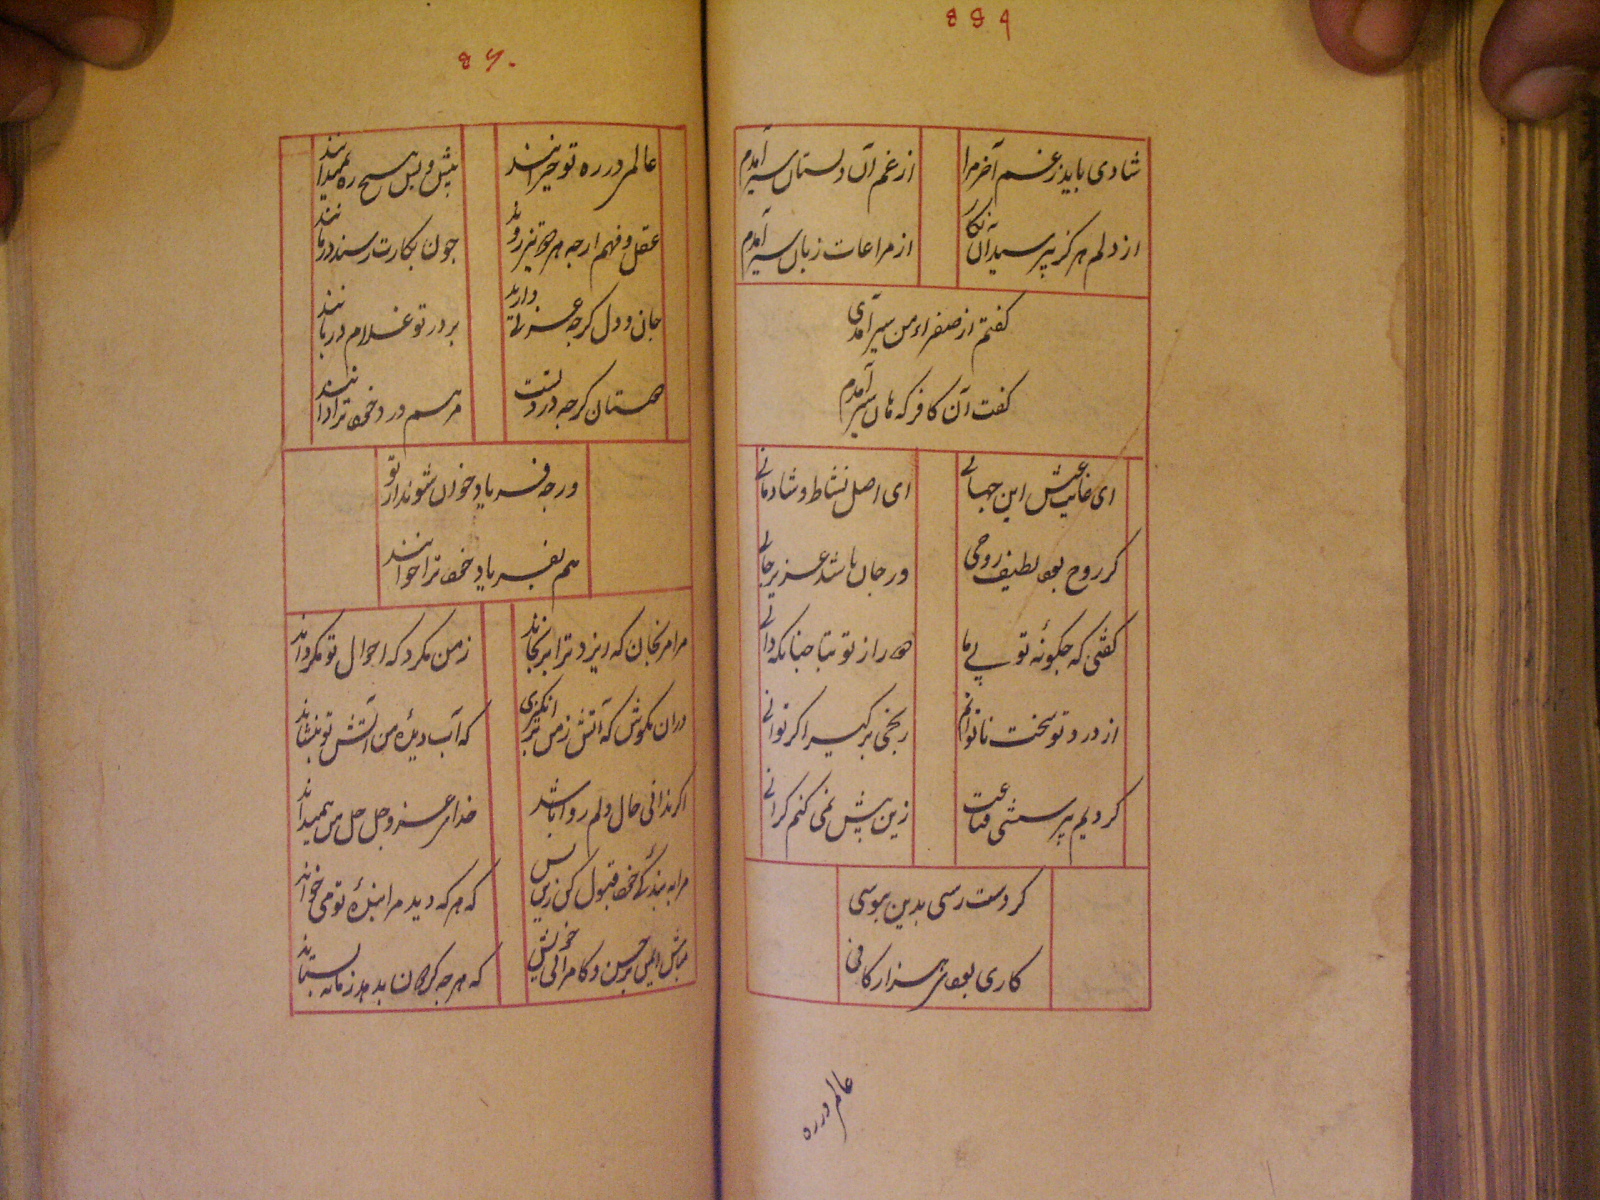 ۵۵۹
شادی باید ز غم آخر مرا
از غم آن دلستان سیر آمدم
از دلم هرگز نپرسید آن نگار
از مراعات زبان سیر آمدم
کفتم از صفراء من سیر آمدی
کفت آن کافر که هان سیر آمدم
ای غایت عیش این جهانی
ای اصل نشاط و شادمانی
کر روح بود لطیف روحی
ور جان باشد عزیز جانی
کفتی که چکونهٔ تو بی ما
از درد تو سخت ناتوانم
رنجی برکیر اکر توانی
کردیم بپرسشی قناعت
زین بیش نمی کنم کرانی
کر دست رسی بدین ببوسی
کاری بود هزار کانی
عالمی در ره
۵۶۰
عالمی در ره تو حیرانند
پیش و پس هیچ ره نمیدانند
عقل و فهم ارچه هر دو تیز روند
چون بکارت رسند درمانند
جان و دل کرچه عزتی دارند
بر در تو غلام دربانند
مرهم درد خود ترا دانند
ورچه فریاد خوان شوند از تو
هم بفریاد خود ترا خوانند
مرا مرنجان که ایزد ترا برنجاند
ز من مکرد که احوال تو بکرداند
در آن مکوش که آتش ز من برانکیزی
که آب دیدهٔ من آتش تو بنشاند
اکر ندانی حال دلم روا باشد
خدای عز و جل حال من همیداند
مرا به بندکی خود قبول کن زین پس
که هر که دید مرا بندهٔ تو می خواند
مباش ایمن بر حسن و کامرانی خویش
که هر چه کردون بدهد زمانه بستاند